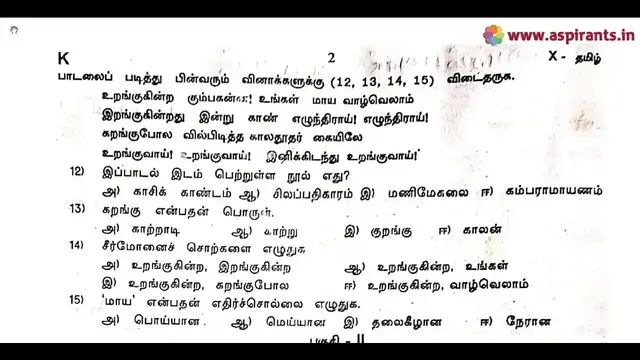 www.aspirants.in
K 2 X - தமிழ்
பாடலைப் படித்து பின்வரும் வினாக்களுக்கு (12, 13, 14, 15) விடைதருக.
உறங்குகின்ற கும்பகன்ன! உங்கள் மாய வாழ்வெலாம்
இறங்குகின்றது இன்று காண் எழுந்திராய்! எழுந்திராய்!
கறங்குபோல வில்பிடித்த காலதூதர் கையிலே
உறங்குவாய்! உறங்குவாய்! இனிக்கிடந்து உறங்குவாய்!'
12) இப்பாடல் இடம் பெற்றுள்ள நூல் எது?
அ) காசிக் காண்டம் ஆ) சிலப்பதிகாரம் இ) மணிமேகலை ஈ) கம்பராமாயணம்
13) கறங்கு என்பதன் பொருள்.
அ) காற்றாடி ஆ) காற்று இ) குறங்கு ஈ) காலன்
14) சீர்மோனைச் சொற்களை எழுதுக
அ) உறங்குகின்ற, இறங்குகின்ற ஆ) உறங்குகின்ற, உங்கள்
இ) உறங்குகின்ற, கறங்குபோல ஈ) உறங்குகின்ற, வாழ்வெலாம்
15) 'மாய' என்பதன் எதிர்ச்சொல்லை எழுதுக.
அ) பொய்யான ஆ) மெய்யான இ) தலைகீழான ஈ) நேரான
பகுதி - II